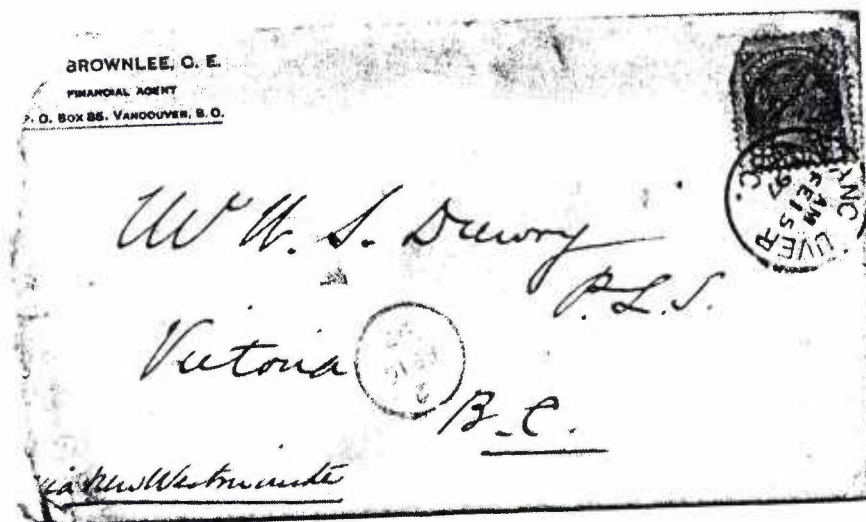 BROWNLEE, C. E.
FINANCIAL AGENT
P. O. BOX 85. VANCOUVER, B. C.
VANCOUVER
AM
FE 15
97
B.C.
Mr W. S. Drewry
P.L.S.
Victoria
B.C.
via New Westminster